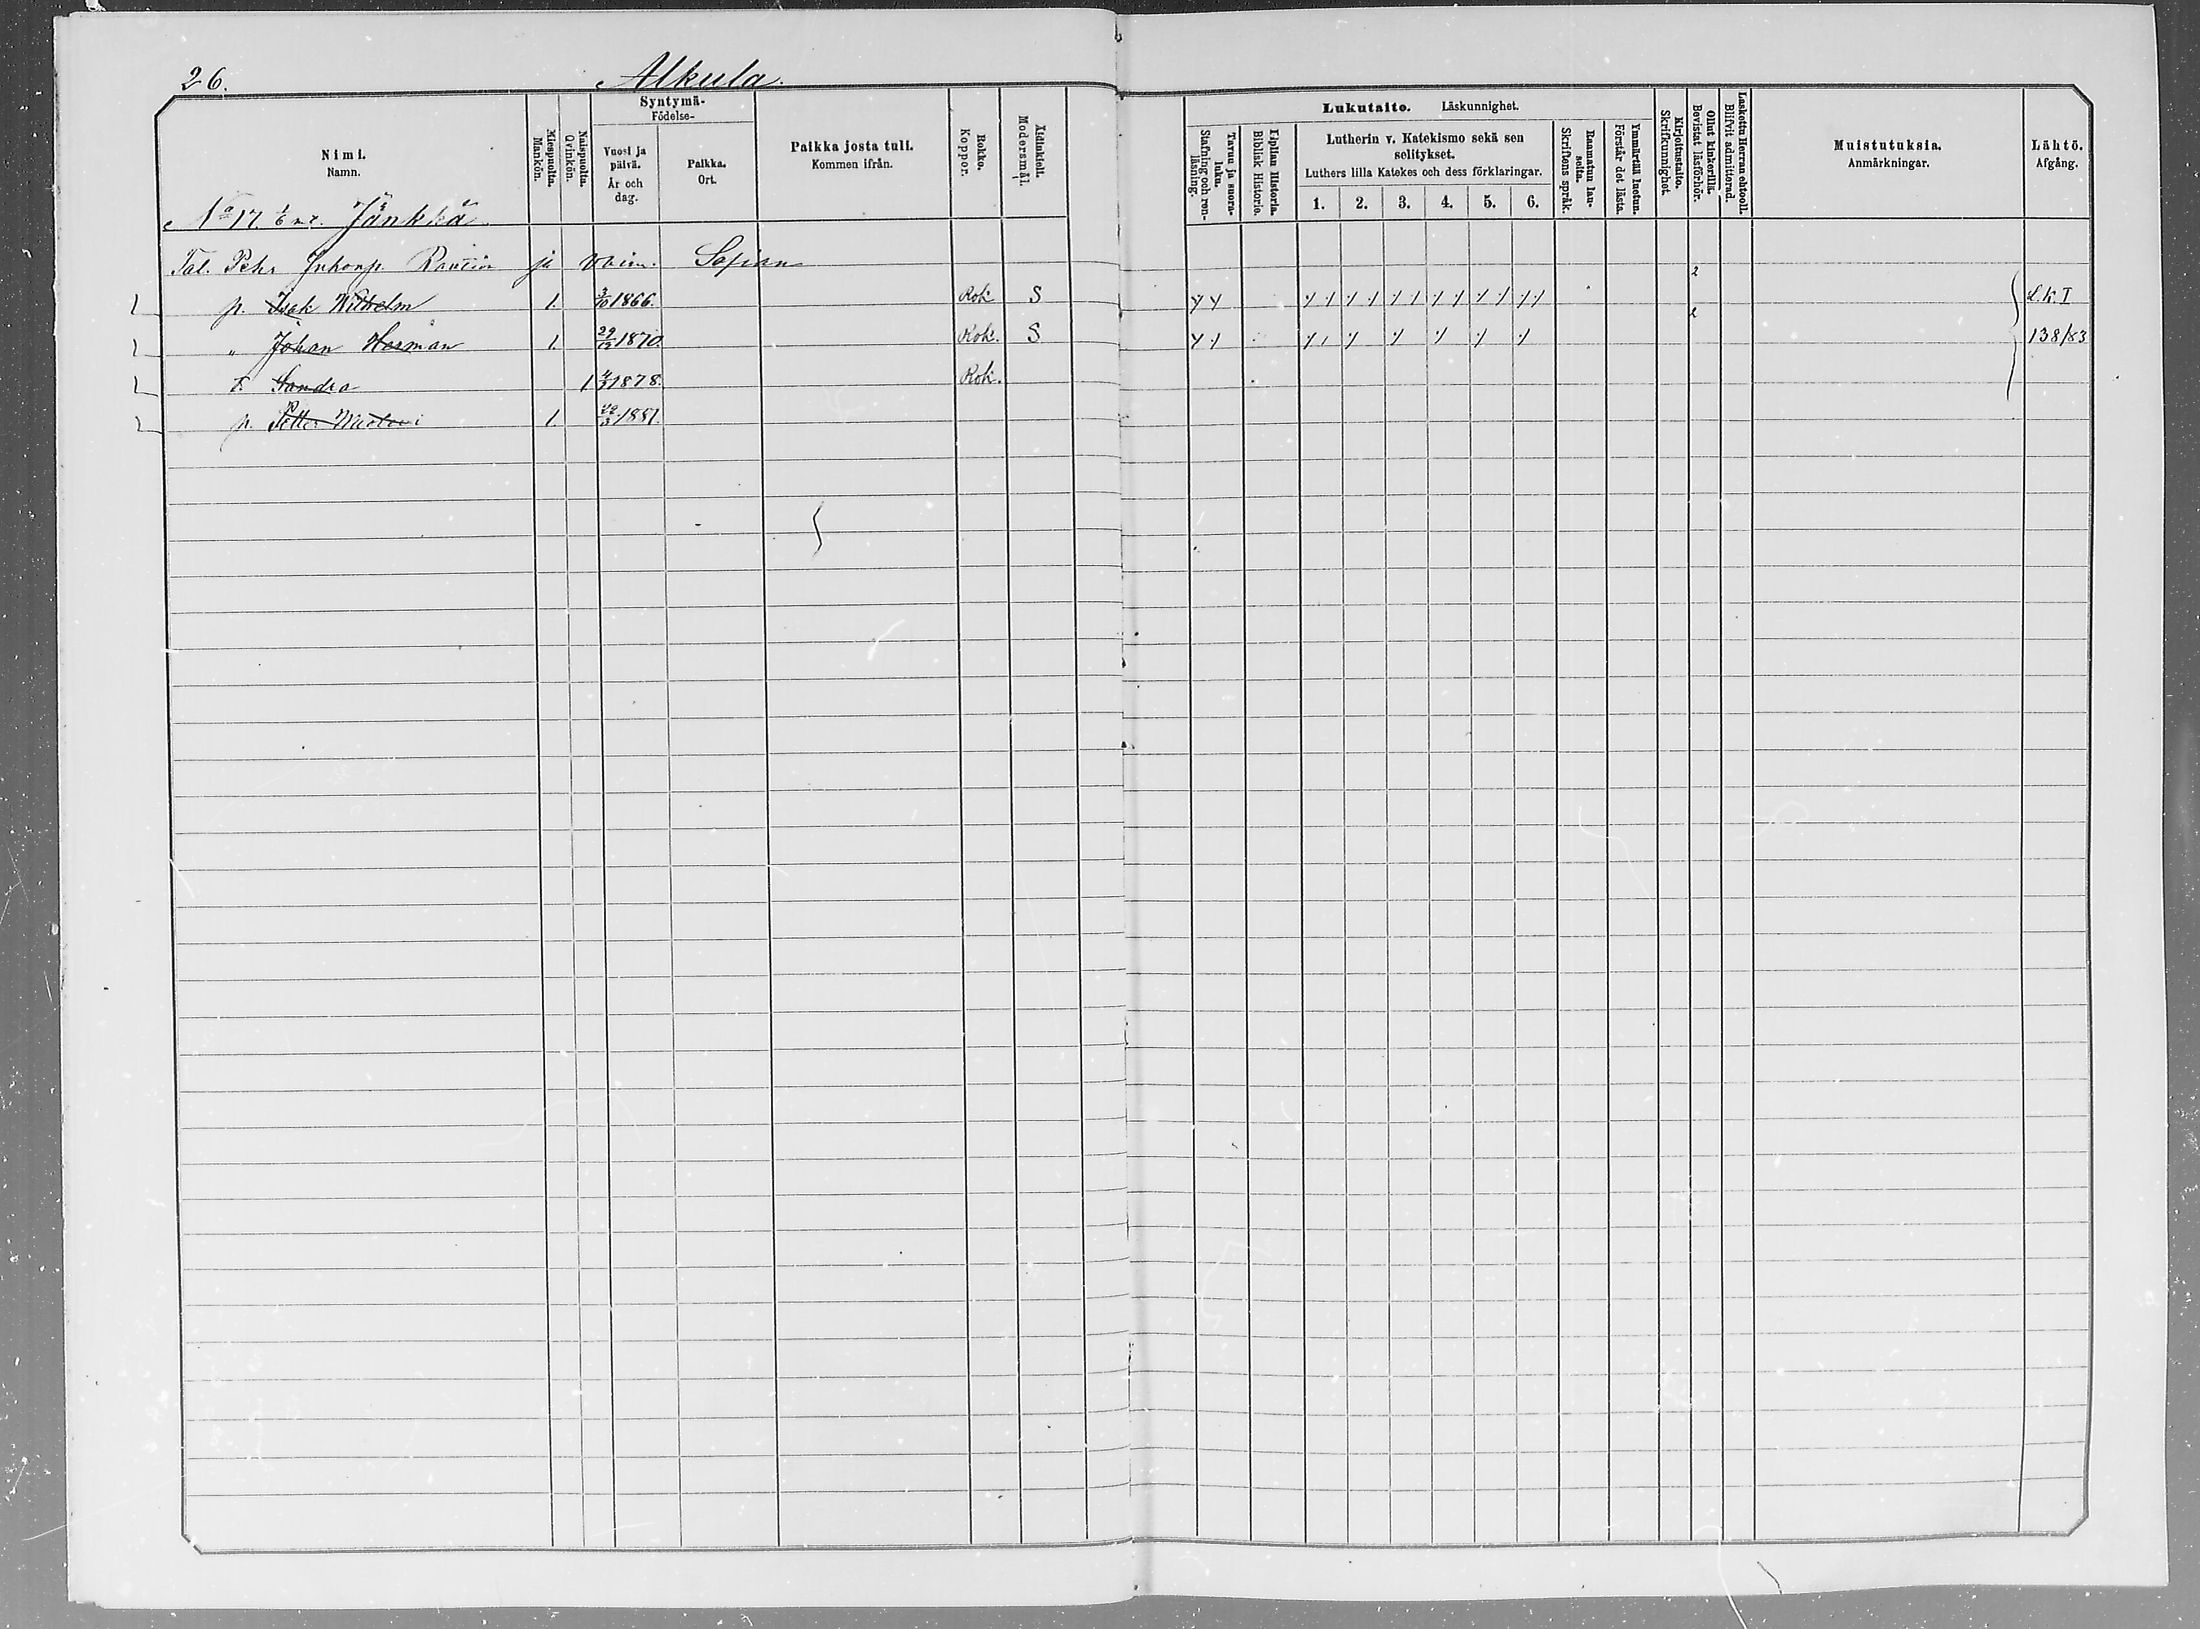 26.
Alkula.
Nimi.
Namn.
Miespuolta.
Mankön.
Naispuolta.
Qvinkön.
Syntymä-
Födelse-
Vuosi ja
päivä.
År och
dag.
Paikka.
Ort.
Paikka josta tuli.
Kommen ifrån.
Rokko.
Koppor.
Äidinkieli.
Modersmål.
Lukutaito. Läskunnighet.
Tavuu ja suora-
luku.
Stafning och ren-
läsning.
Biblian Historia.
Biblisk Historie.
Lutherin v. Katekismo sekä sen
selitykset.
Luthers lilla Katekes och dess förklaringar.
1. 2. 3. 4. 5. 6.
Raamatun lau-
seita.
Skriftens språk.
Ymmärtää luetun.
Förstår det lästa.
Kirjoitustaito.
Skrifkunnighet.
Ollut kinkerillä.
Bevistat läsförhör.
Laskettu Herran ehtooll.
Blifvit admitterad.
Muistutuksia.
Anmärkningar.
Lähtö.
Afgång.
No 17. Jänkkä
Tal. Pehr Rautio ja vaim. Sofian 2
p. Isak Wilhelm 1. 3/10 1866. Rok S L.K.I 2
" Johan Herman 1. 29/12 1870. Rok. S 138/83
t. Sandra 1 4/3 1878. Rok.
p. Petter 1. 22/3 1881.